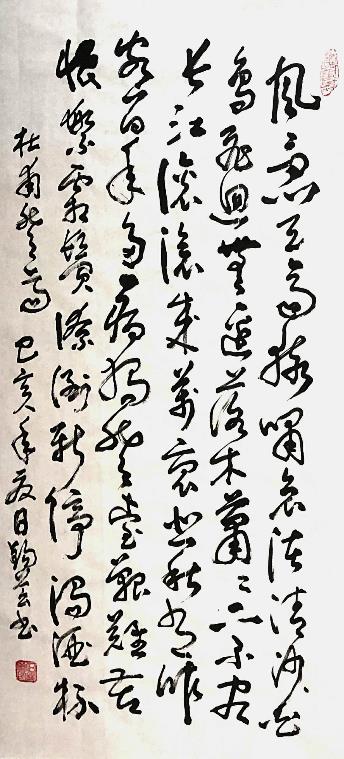 風急天高猿嘯哀渚清沙白
鳥飛迴無邊落木蕭〻下不盡
長江滾滾來萬裏悲秋常作
客百年多病獨登臺艱難苦
恨繁霜鬢潦倒新停濁酒杯
杜甫登高 己亥年夏日書